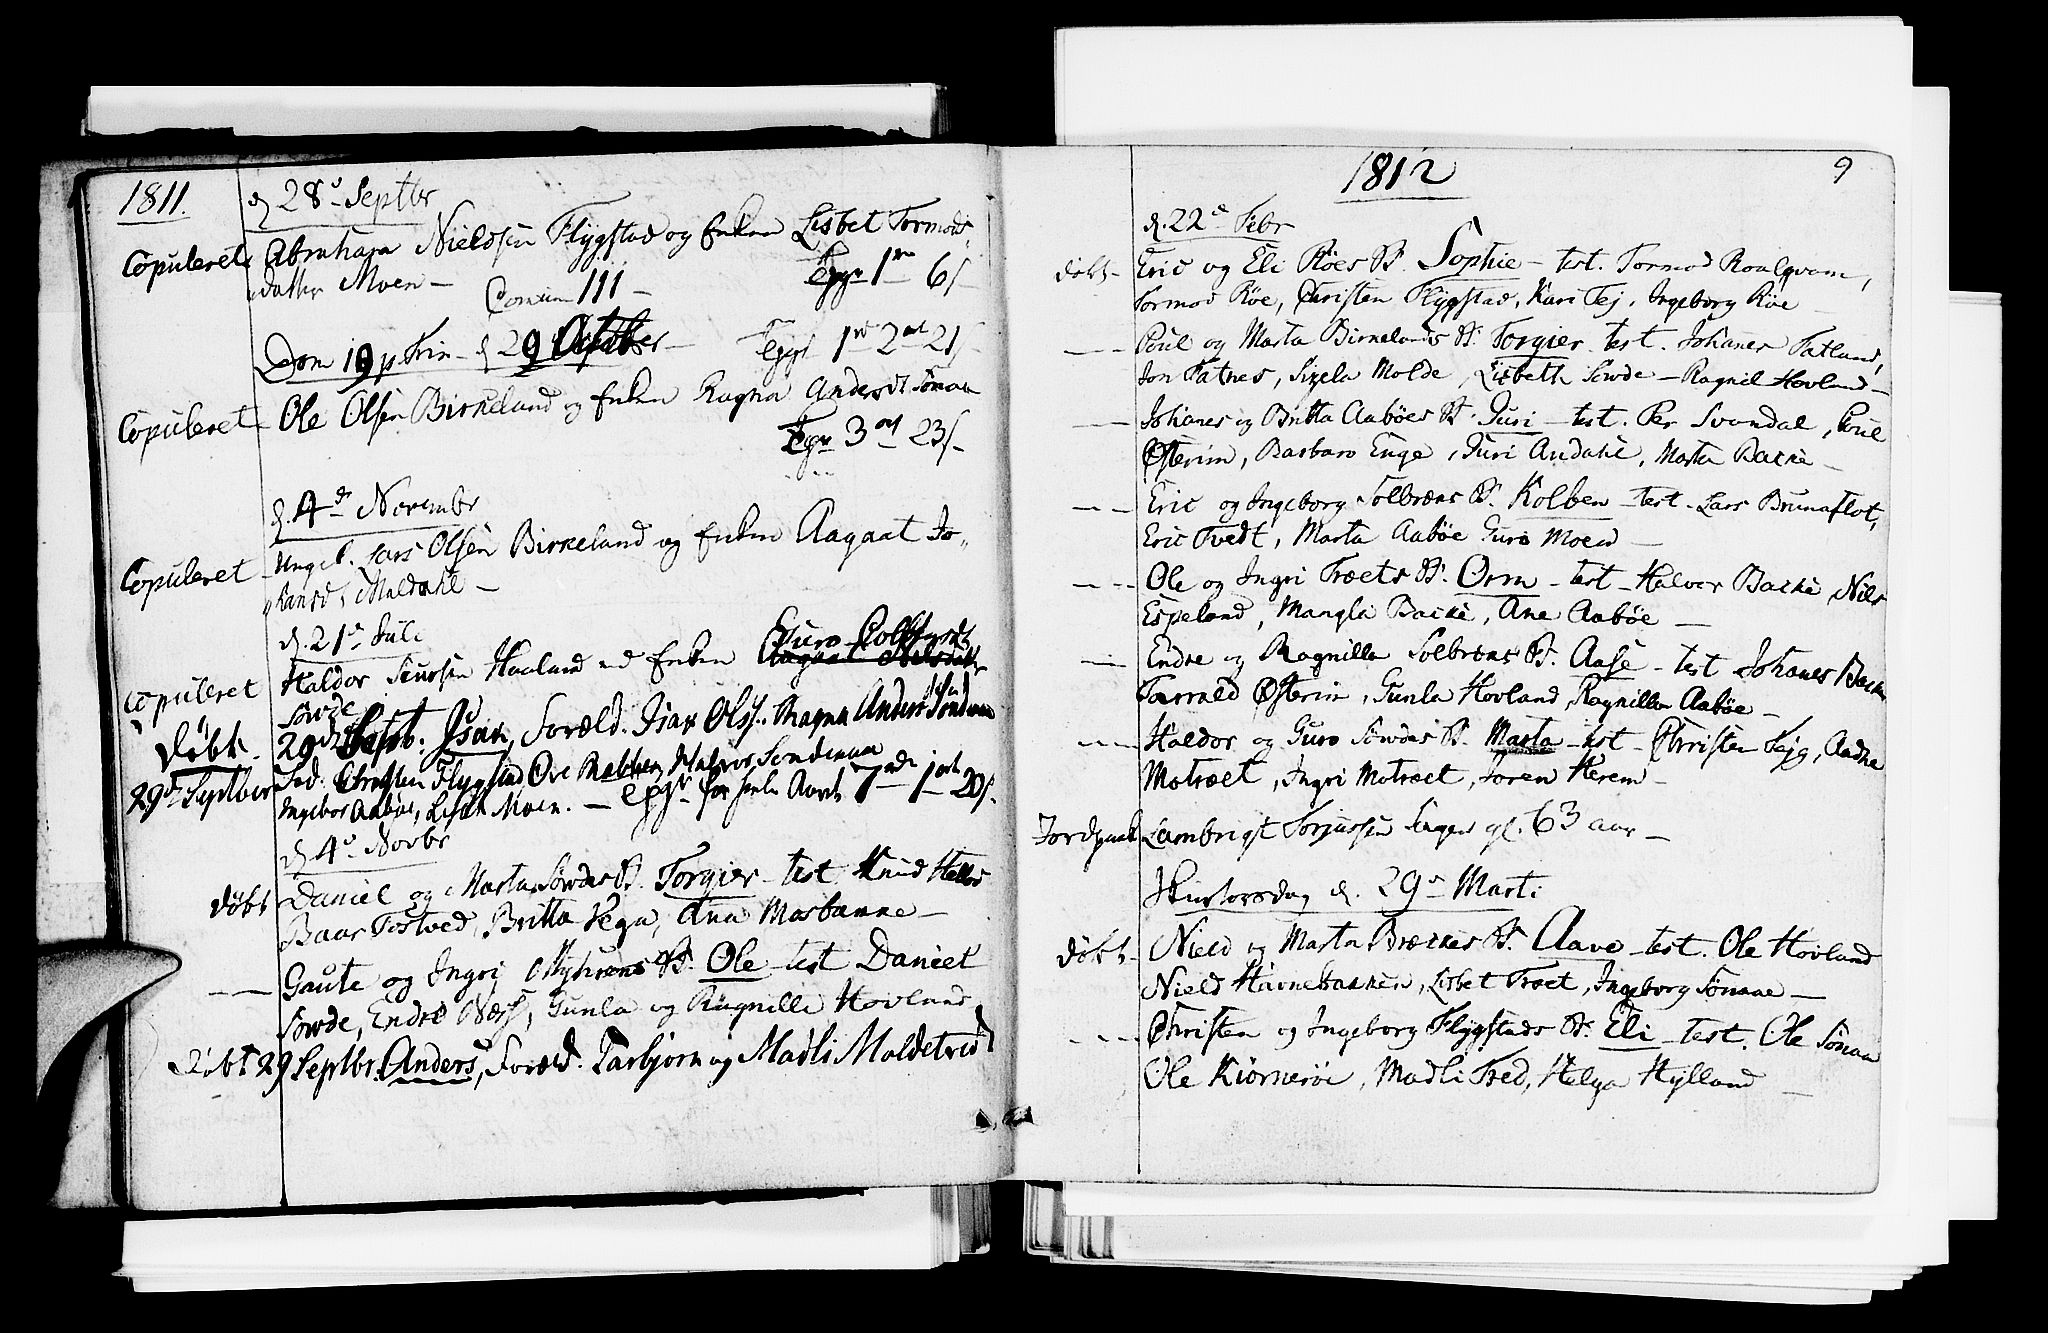 1811.
d 28de Septbr
Copuleret Abraham Nieldsen Flygstad og Enken Lisbet Tormods
datter Moen –
6/-
Comun 111 –
Dom 19 p Trin – d 29 October –
21/-
Copuleret Ole Olsen Birkeland og Enken Ragna Andersdt Sønaa
3 23/-
d. 4de Novembr
Copuleret Ungk. Lars Olsen Birkeland og Enken Aagaat Jo„
„hansd, Maldahl –
d. 21de Juli
Copuleret Haldor Siursen Haaland Enken Guro
Aagaat Nilsdatter
Søvde
Døbt 29de Septb: Isak, Foræld. Isak Olss. Magna Anders Søndenaa
29de Septbr Fad. Christen Flygstad, Ove Halvor Søndenaa
Ingebor Aabøe, Moen. – for 20/-
d 4de Novbr
døbt Daniel og Marta Søvdes B. Torgier – test Knud
Baar Tostved, Britta Vega, Ana
– – Gaute og Ingri B. Ole – test Daniel
Søvde, Endre Næss, Gunla og Ragnille Hovland
døbt 29 Septbr. Anders, Foræld. Tarbjørn og Madli Moldetvid
1812
9
d. 22de Febr
døbt – Eric og Eli Røes B. Sophie – test. Tormod Roalqvam,
Tormod Røe, Christen Flygstad, Kari Tej, Ingeborg Røe
– – Poul og Marta Birkelands B. Torgier – test. Johanes Fatland,
Jon Fatnes, Sizela Molde, Lisbeth Søvde – Ragnil Hovland –
– – Johanes og Britta Aabøes B. Guri – test. Per Svandal, Poul
Østerim, Barbaro Enge, Guri Andahl, Marta Backe –
– – Eric og Ingeborg Solbræks B. Kolben – test – Lars Brunaflot,
Eric Tvedt, Marta Aabøe Guro Moen –
– – Ole og Ingri Træets B. Orm – test – Halvor Backe, Nils
Espeland, Mangla Backe, Ane Aabøe –
– Endre og Ragnilla B. Aase – test Johanes Backe
Østerim, Gunla Hovland, Ragnilla Aabøe –
– – Haldor og Guro Søvdes B. Marta – test – Christen Tejg, Andre
Motræet, Ingri Motræet, Joren Herem –
Jordpaak. Lambrigt Torjussen gl. 63 aar –
Skiertorsdag d. 29de Marti
døbt – Nield og Marta Bræckes B. Aave – test. Ole Hovland
Nield Havnebakken, Lisbet Træet, Ingeborg Sønnae –
– – Christen og Ingeborg Flygstads B. Eli – test. Ole Sønaa
Ole Kiørnerøe, Madli Tved, Helga Hylland –